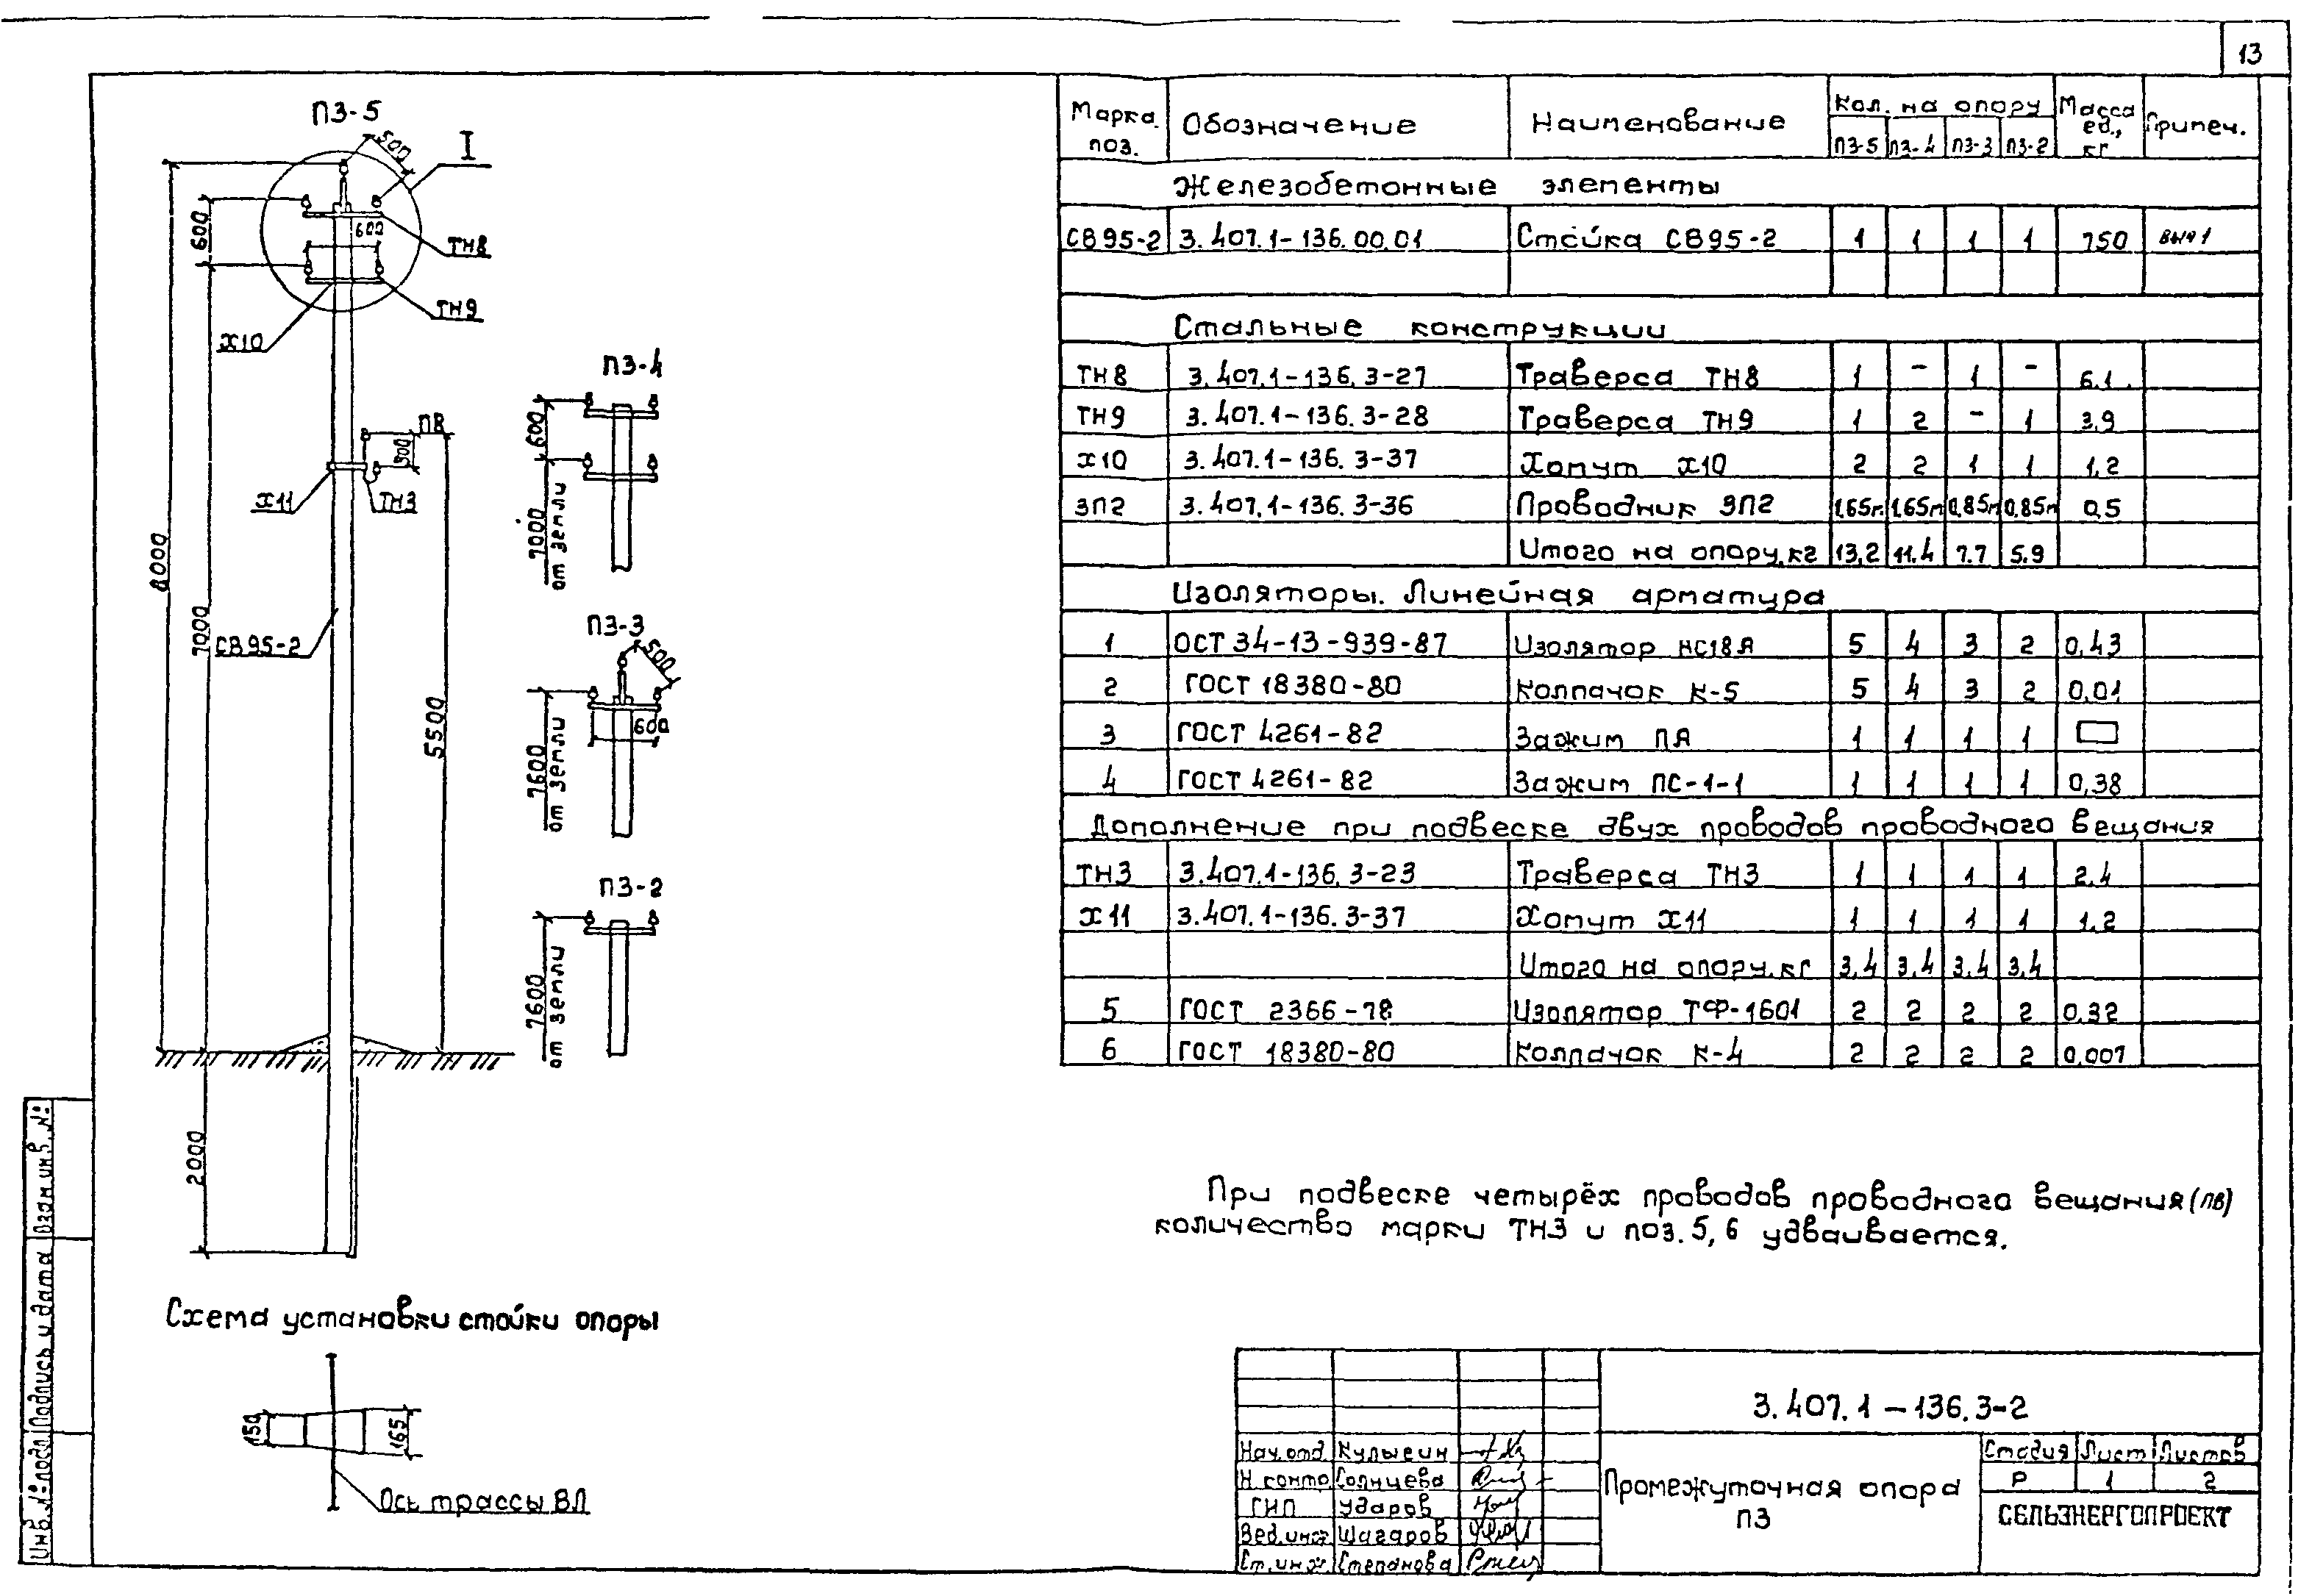 13
П3-5
500
I
600
600
ТН8
ТН9
Х10
ПВ
300
Х11
ТН3
8000
7000
СВ95-2
5500
2000
П3-4
600
7000
от земли
П3-3
500
600
7600
от земли
П3-2
7600
от земли
Схема установки стойки опоры
150
165
Ось трассы ВЛ
Марка, поз. Обозначение Наименование Кол. на опору Масса ед., кг Примеч.
П3-5 П3-4 П3-3 П3-2
Железобетонные элементы
СВ95-2 3.407.1-136.00.01 Стойка СВ95-2 1 1 1 1 750 вып 1
Стальные конструкции
ТН8 3.407.1-136.3-27 Траверса ТН8 1 - 1 - 6.1
ТН9 3.407.1-136.3-28 Траверса ТН9 1 2 - 1 3,9
Х10 3.407.1-136.3-37 Хомут Х10 2 2 1 1 1,2
ЗП2 3.407.1-136.3-36 Проводник ЗП2 1,65м 1,65м 0,85м 0,85м 0,5
Итого на опору, кг 13,2 11.4 7.7 5.9
Изоляторы. Линейная арматура
1 ОСТ 34-13-939-87 Изолятор НС18А 5 4 3 2 0,43
2 ГОСТ 18380-80 Колпачок К-5 5 4 3 2 0,01
3 ГОСТ 4261-82 Зажим ПА 1 1 1 1
4 ГОСТ 4261-82 Зажим ПС-1-1 1 1 1 1 0,38
Дополнение при подвеске двух проводов проводного вещания
ТН3 3.407.1-136.3-23 Траверса ТН3 1 1 1 1 2.4
Х11 3.407.1-136.3-37 Хомут Х11 1 1 1 1 1,2
Итого на опору, кг 3,4 3,4 3,4 3,4
5 ГОСТ 2366-78 Изолятор ТФ-1601 2 2 2 2 0,32
6 ГОСТ 18380-80 Колпачок К-4 2 2 2 2 0,007
При подвеске четырёх проводов проводного вещания (ПВ)
количество марки ТН3 и поз. 5, 6 удваивается.
3.407.1-136.3-2
Нач.отд. Кулыгин
Н.контр Солнцева
ГИП Ударов
Вед.инж. Шагаров
Ст.инж. Степанова
Промежуточная опора
П3
Стадия Лист Листов
Р 1 2
СЕЛЬЭНЕРГОПРОЕКТ
Инв. № подл. Подпись и дата Взам.инв. №